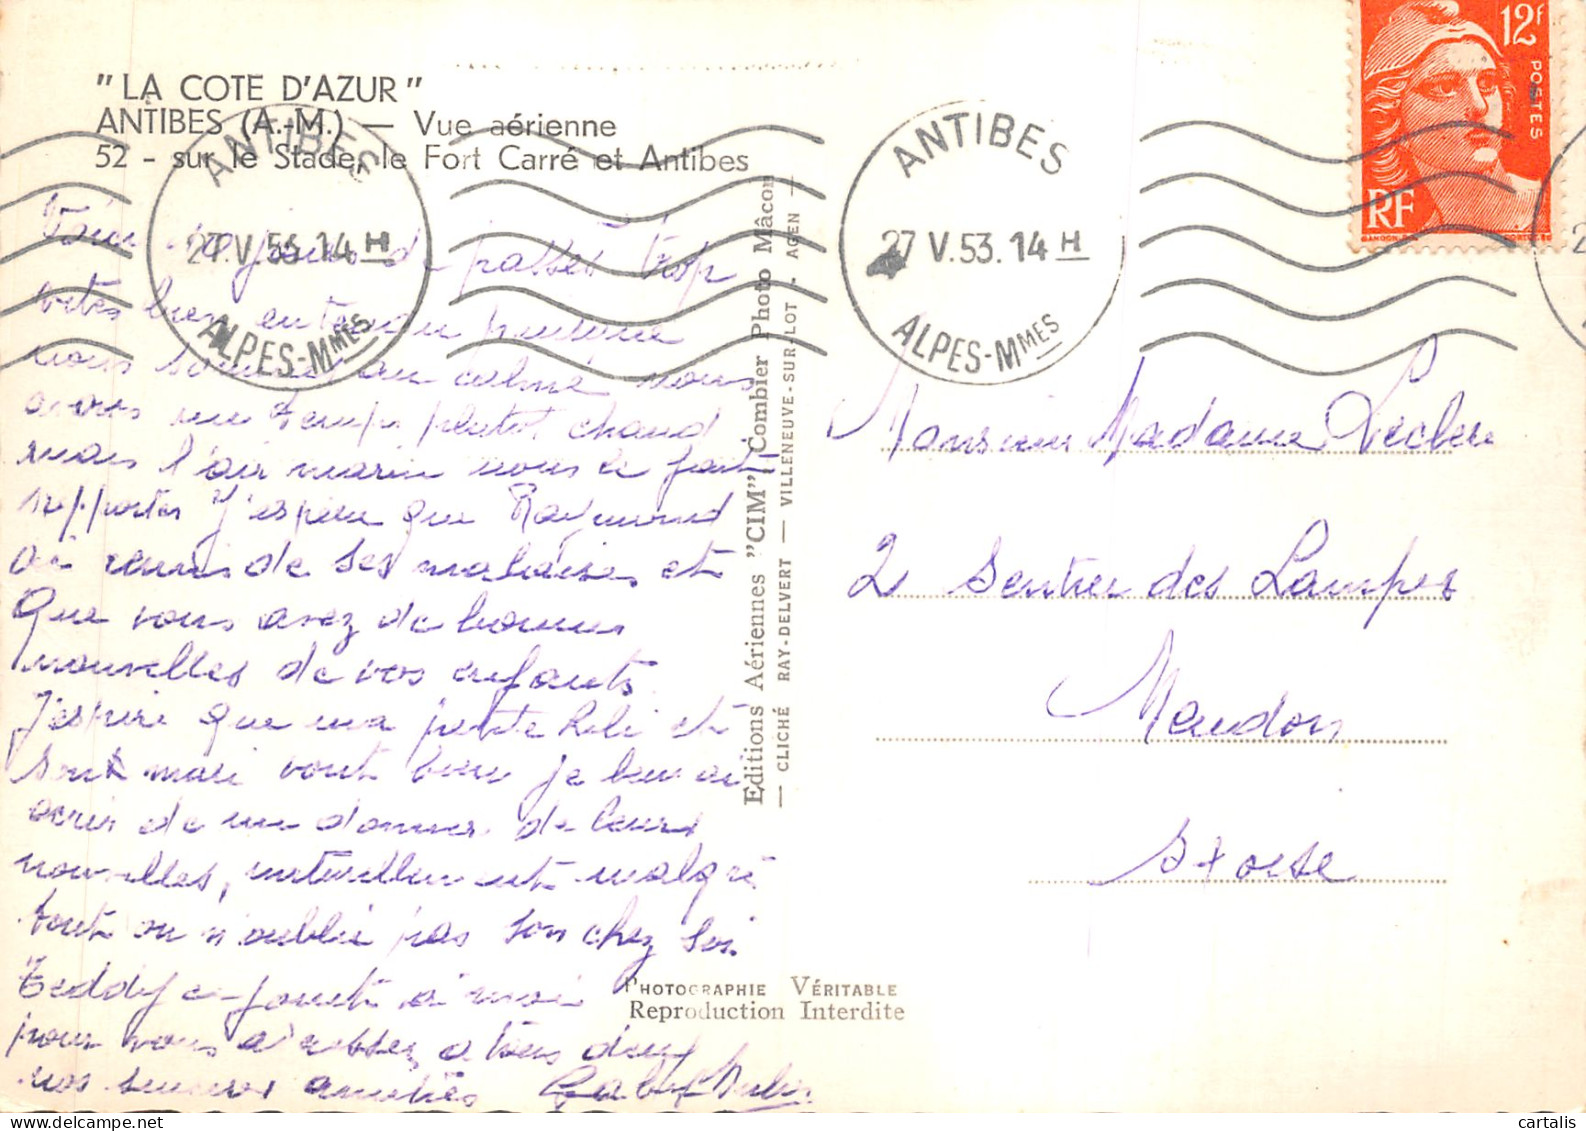 "LA COTE D'AZUR"
ANTIBES (A.-M.) — Vue aérienne
52 - sur le Stade, le Fort Carré et Antibes
ANTIBES
27.V.53.14H
ALPES-MMES
ANTIBES
27 V.53.14H
ALPES-MMES
12F
POSTES
RF
jours passés trop
vites bien
nous sommes au calme nous
avons un temps plutot chaud
mais l'air marin nous le fait
supporter J'espere que Raymond
remis de ses malaises et
Que vous avez de bonnes
nouvelles de vos enfants
J'espere que ma petite et
son mari vont bien je
ecrir de me donner de leurs
nouvelles, naturellement malgré
tout on n'oublie pas son chez soi
Teddy se joint a moi
pour vous adresser a tous deux
nos amitiés
Editions Aériennes "CIM" Combier Photo Mâcon
— CLICHÉ RAY-DELVERT — VILLENEUVE-SUR-LOT . AGEN —
PHOTOGRAPHIE VÉRITABLE
Reproduction Interdite
Monsieur Madame Leclerc
2 Sentier des Lampes
Meudon
S et oise
cartalis